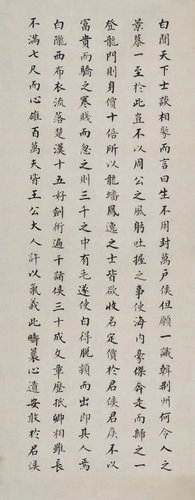 白聞天下士談相聚而言曰生不用封萬戶侯但願一識韓荊州何令人之
景慕一至於此豈不以周公之風躬吐握之事使海內豪俊奔走而歸之一
登龍門則身價十倍所以龍蟠鳳逸之士皆欲收名定價於君侯君侯不以
富貴而驕之寒賤而忽之則三千之中有毛遂使白得脫穎而出即其人焉
白隴西布衣流落楚漢十五好劍術遍干諸侯三十成文章歷抵卿相雖長
不滿七尺而心雄百萬夫皆王公大人許以氣義此疇曩心遺安敢於君侯